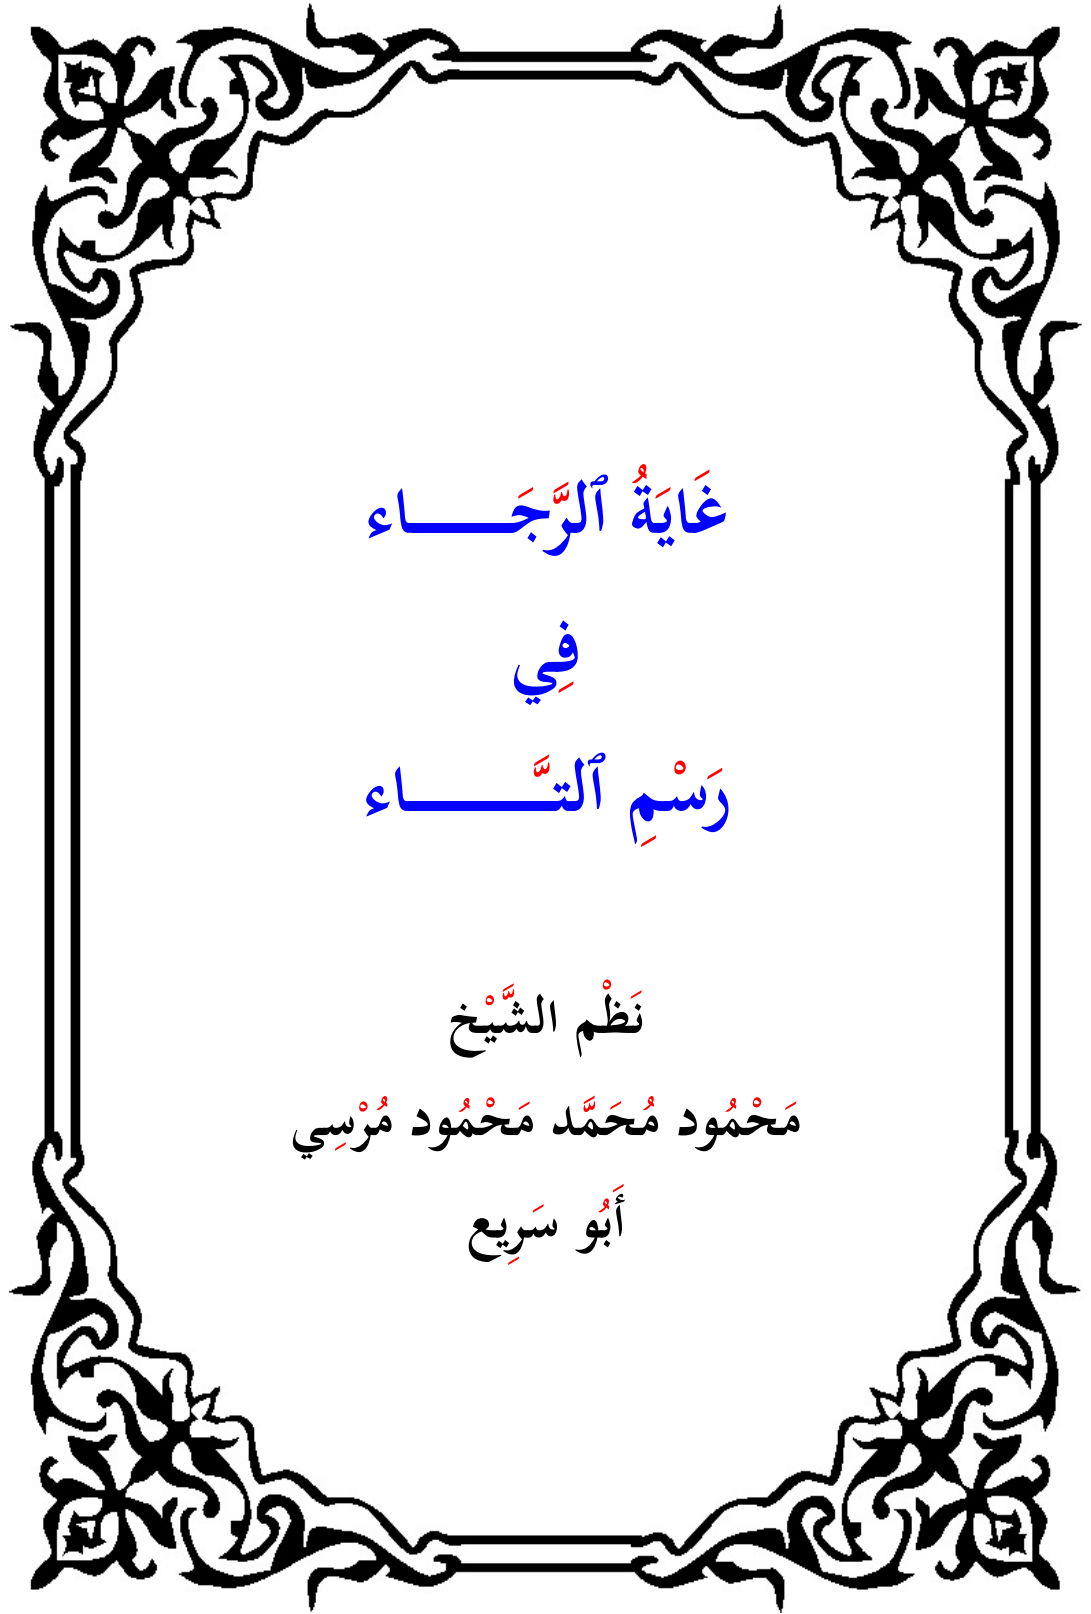 غَايَةُ ٱلرَّجَـــــاء
فِي
رَسْمِ ٱلتَّـــــــاء
نَظْم الشَّيْخ
مَحْمُود مُحَمَّد مَحْمُود مُرْسِي
أَبُو سَرِيع